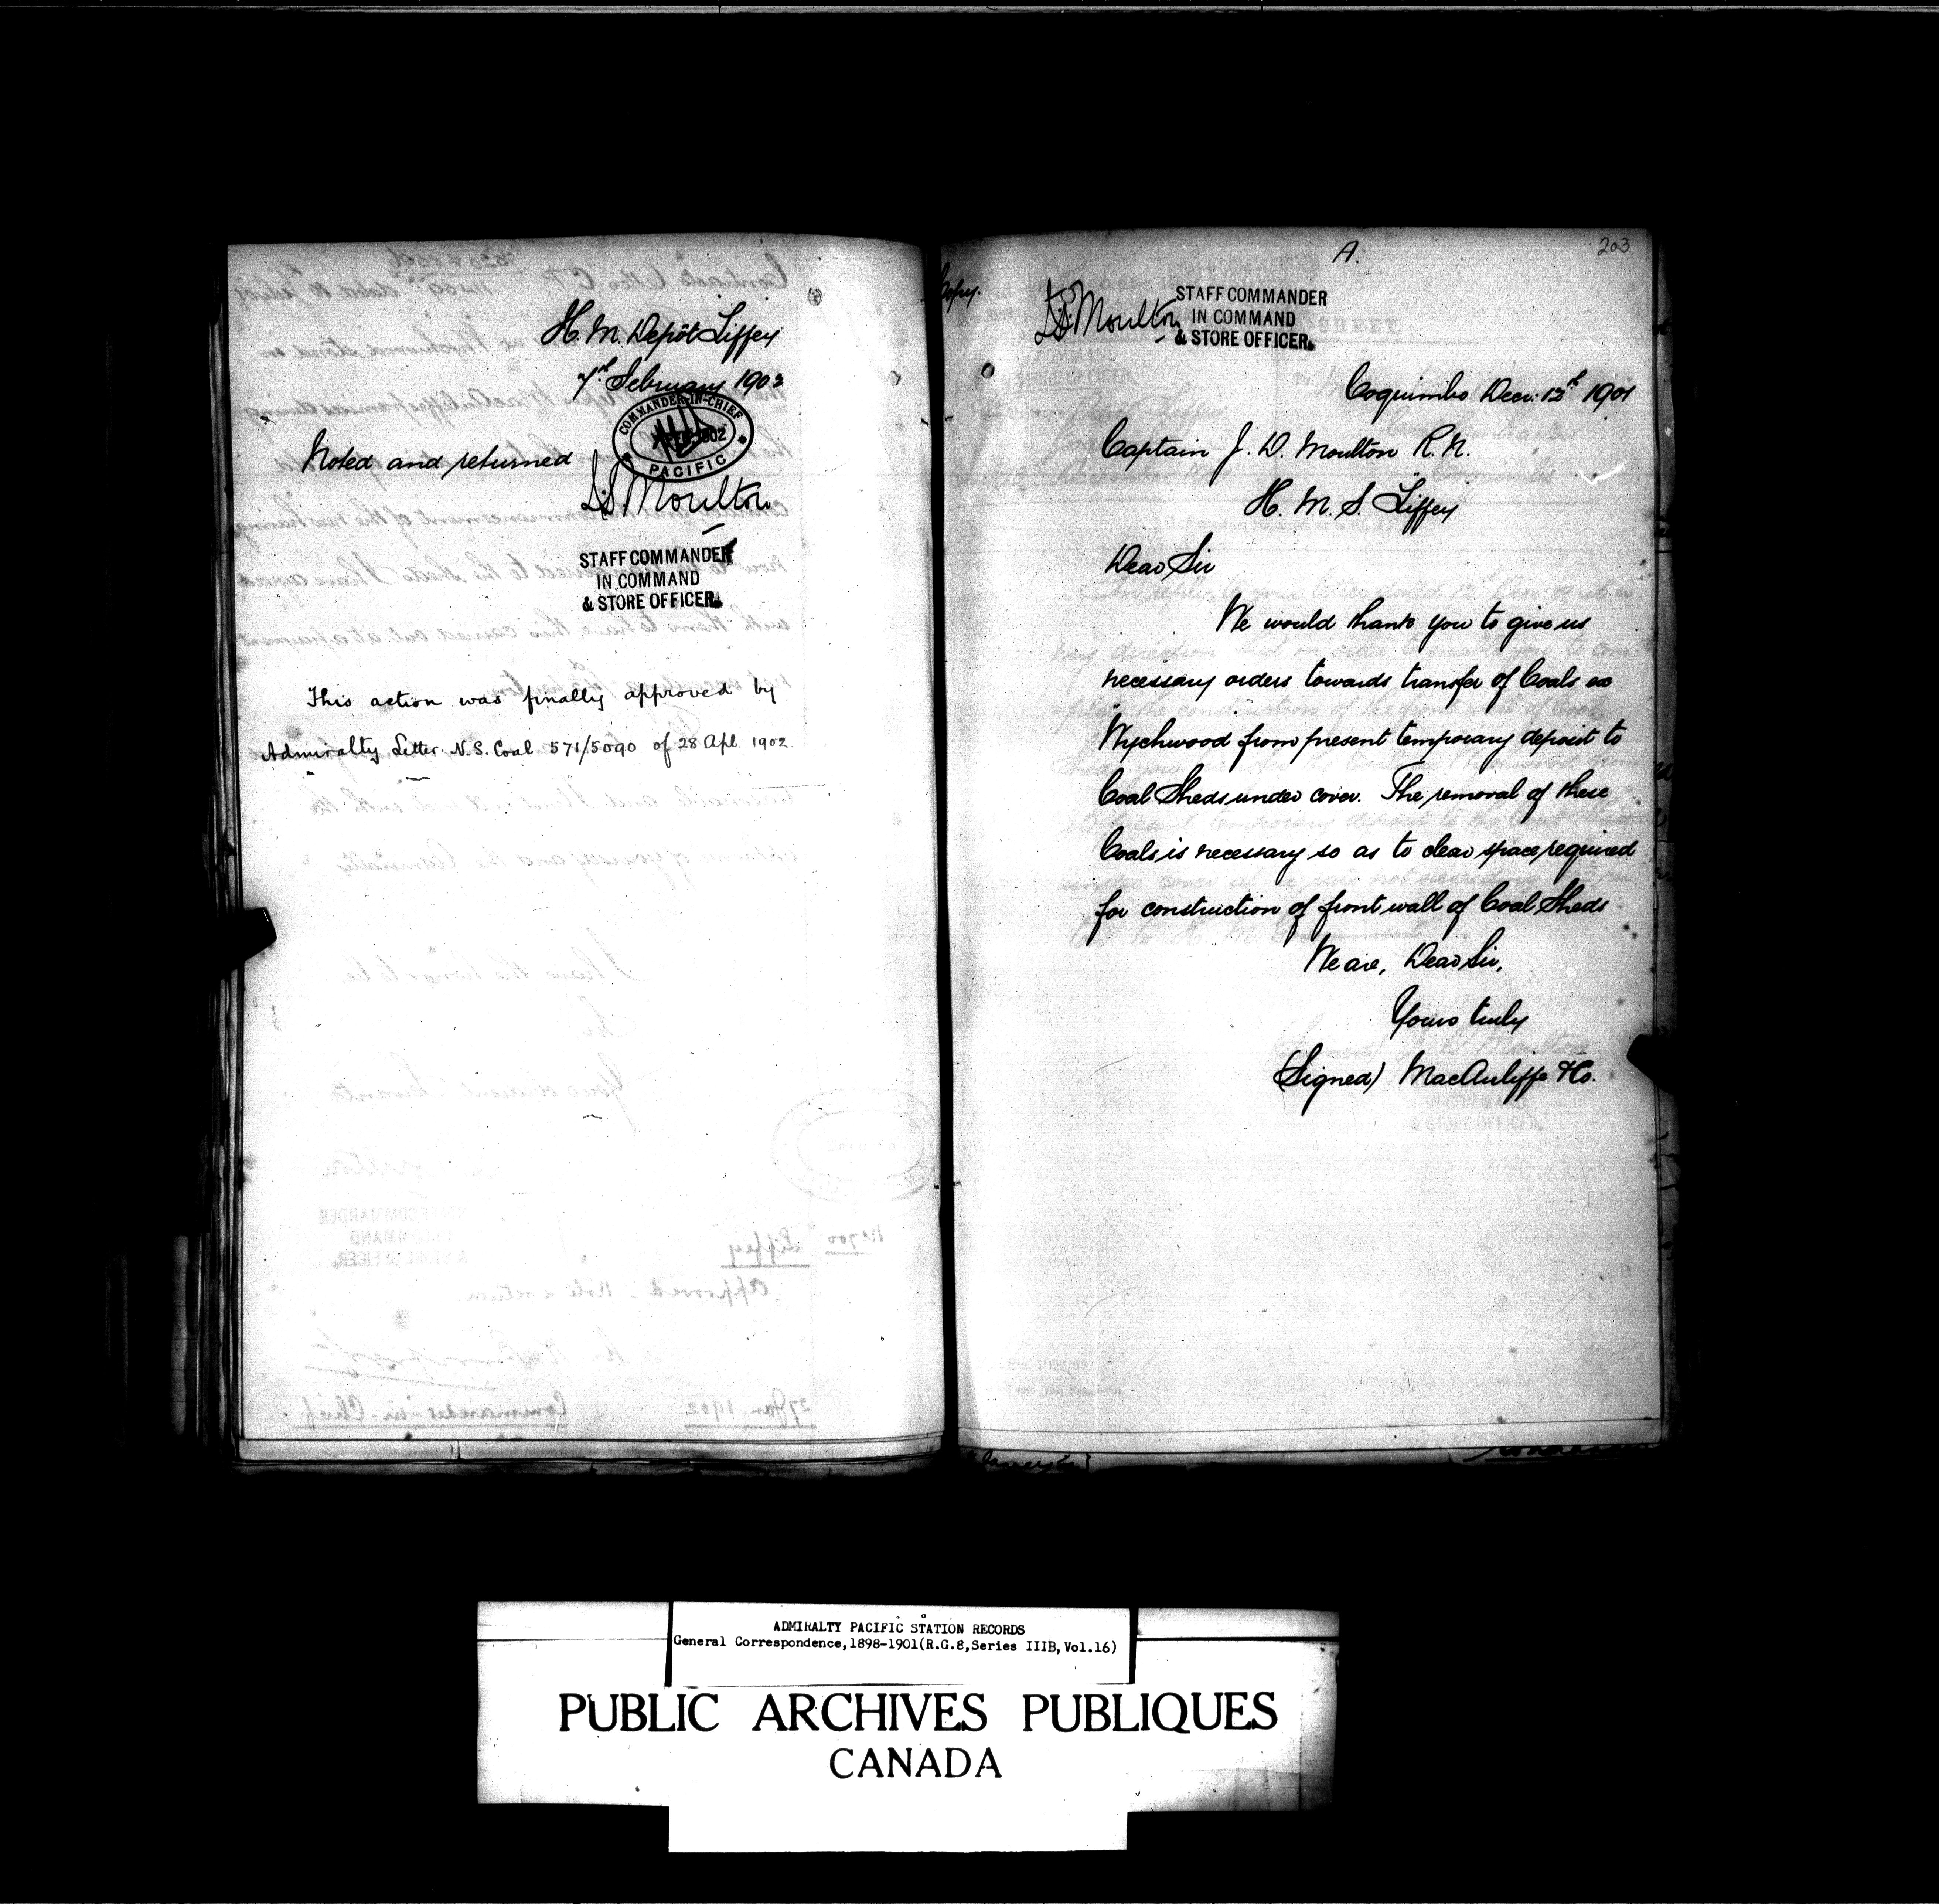 H. M. Depôt Liffey
7th February 1902
COMMANDER-IN-CHIEF
1902
PACIFIC
Noted and returned
J.D. Moulton
STAFF COMMANDER
IN COMMAND
& STORE OFFICER.
This action was finally approved by
Admiralty Letter N.S. Coal 571/5090 of 28 Apl. 1902.
A.
203
Copy.
J.D. Moulton
STAFF COMMANDER
IN COMMAND
& STORE OFFICER.
Coquimbo Decr. 12th 1901
Captain J. D. Moulton R. N.
H. M. S. Liffey
Dear Sir
We would thank you to give us
necessary orders towards transfer of Coals ex
"Wychwood from present temporary deposit to
Coal Sheds under cover. The removal of these
Coals is necessary so as to clear space required
for construction of front wall of Coal Sheds
We are, Dear Sir,
Yours truly
(Signed) MacAuliffe & Co.
ADMIRALTY PACIFIC STATION RECORDS
General Correspondence, 1898-1901 (R.G.8, Series IIIB, Vol.16)
PUBLIC ARCHIVES PUBLIQUES
CANADA